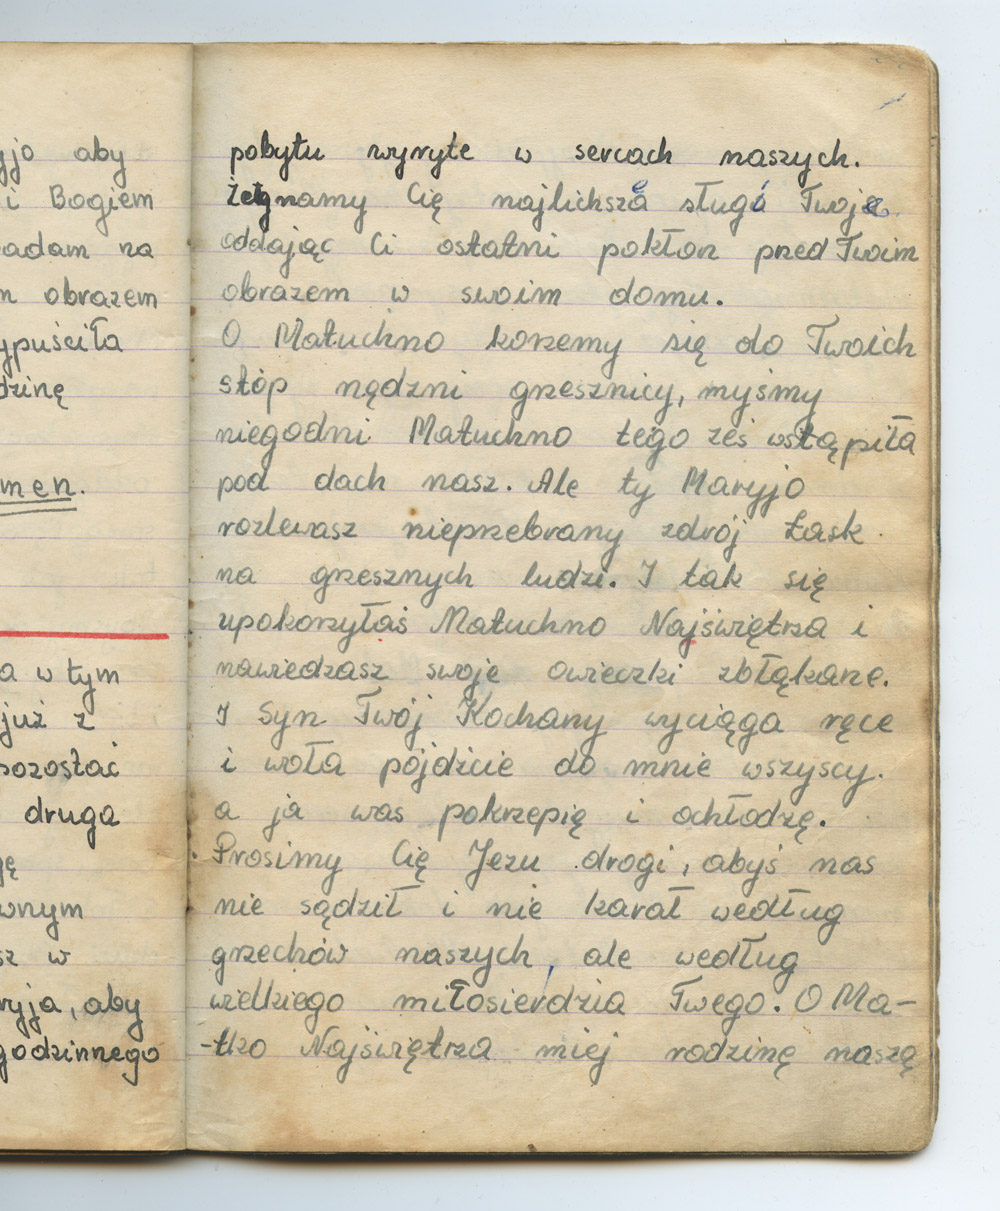 yjo aby
i Bogiem
adam na
m obrazem
ypuściła
dzinę
men.
a w tym
już z
pozostać
druga
gę
wnym
sz w
ryja, aby
godzinnego
pobytu wyryte w sercach naszych.
Żegnamy Cię najlichsze sługi Twoje
oddając Ci ostatni pokłon pred Twoim
obrazem w swoim domu.
O Matuchno korzemy się do Twoich
stóp nędzni grzesznicy, myśmy
niegodni Matuchno tego żeś wstąpiła
pod dach nasz. Ale ty Maryjo
rozlewasz nieprzebrany zdrój Łask
na grzesznych ludzi. I tak się
upokorzyłaś Matuchno Najświętrza i
nawiedzasz swoje owieczki zbłąkane.
I Syn Twój Kochany wyciąga ręce
i woła pójdźcie do mnie wszyscy.
a ja was pokrzepię i ochłodzę.
Prosimy Cię Jezu drogi, abyś nas
nie sądził i nie karał według
grzechów naszych, ale według
wielkiego miłosierdzia Twego. O Ma-
-tko Najświętrza miej rodzinę naszą